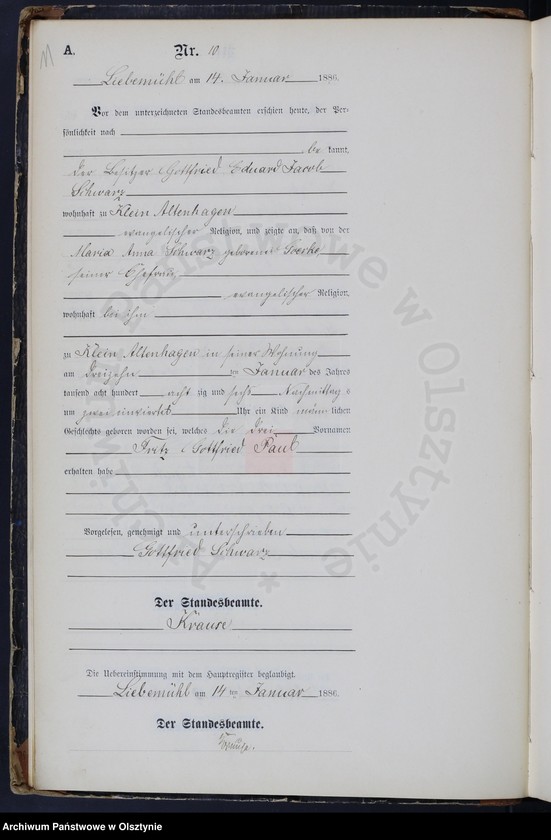 11
A.
Nr. 10
Liebemühl am 14. Januar 1886
Vor dem unterzeichneten Standesbeamten erschien heute, der Per-
sönlichkeit nach
be kannt,
der Besitzer Gottfried Eduard Jacob
Schwarz
wohnhaft zu Klein Altenhagen
evangelischer Religion, und zeigte an, daß von der
Maria Anna Schwarz geborene
seiner Ehefrau
evangelischer Religion,
wohnhaft bei ihm
zu Klein Altenhagen in seiner Wohnung
am dreizehn ten Januar des Jahres
tausend acht hundert acht zig und sechs Nachmittag s
um zwei Uhr ein Kind männ lichen
Geschlechts geboren worden sei, welches die drei Vornamen
Fritz Gottfried Paul
erhalten habe
Vorgelesen, genehmigt und unterschrieben
Gottfried Schwarz
Der Standesbeamte.
Krause
Die Uebereinstimmung mit dem Hauptregister beglaubigt.
Liebemühl am 14 ten Januar 1886.
Der Standesbeamte.
Krause.
Archiwum Państwowe w Olsztynie
Archiwum Państwowe w Olsztynie